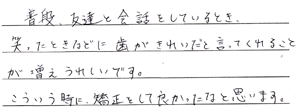 普段、友達と会話をしているとき、
笑ったときなどに歯がきれいだと言ってくれること
が増えうれしいです。
こういう時に、矯正をして良かったなと思います。